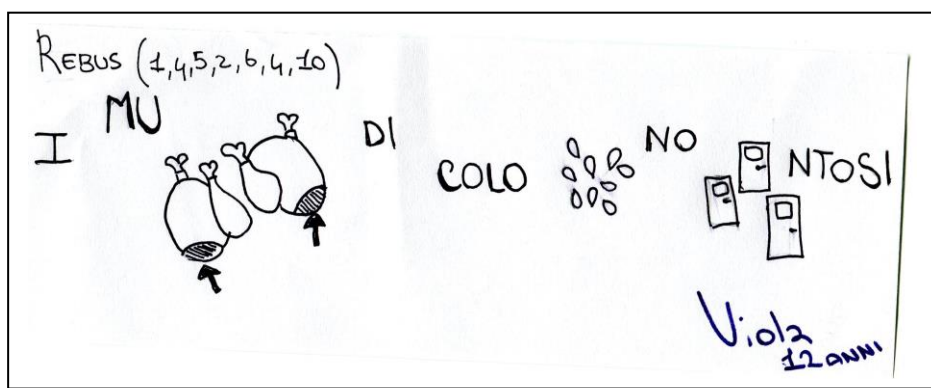 REBUS (1,4,5,2,6,4,10)
I MU DI COLO NO NTOSI
Viola
12 ANNI